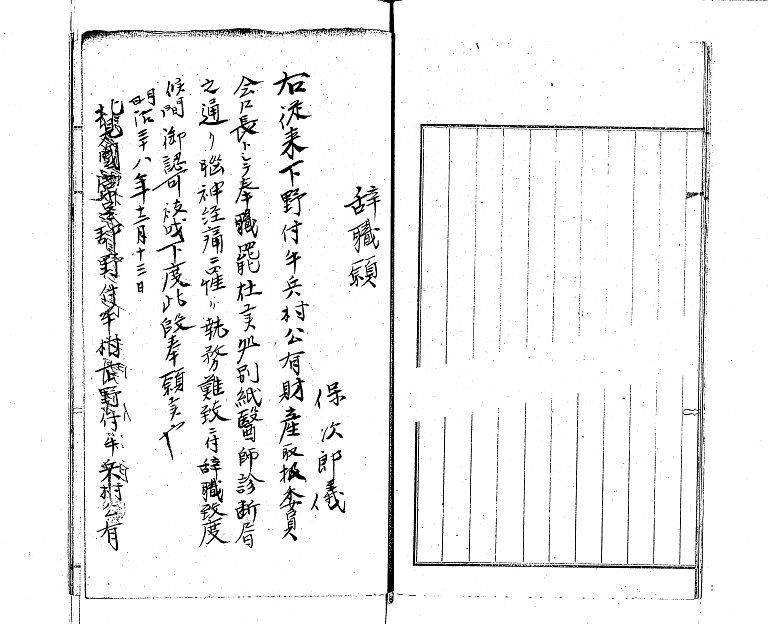 辞職願
保次郎儀
右従来下野付牛兵村公有財産取扱委員
会々長トシテ奉職罷在候処別紙醫師診断
之通リ脳神経痛ニ罹リ執務難致ニ付辞職致度
候間御認可被成下度此段奉願候也
明治三十八年十二月十三日
北見國 野付牛村 野付牛兵村公有